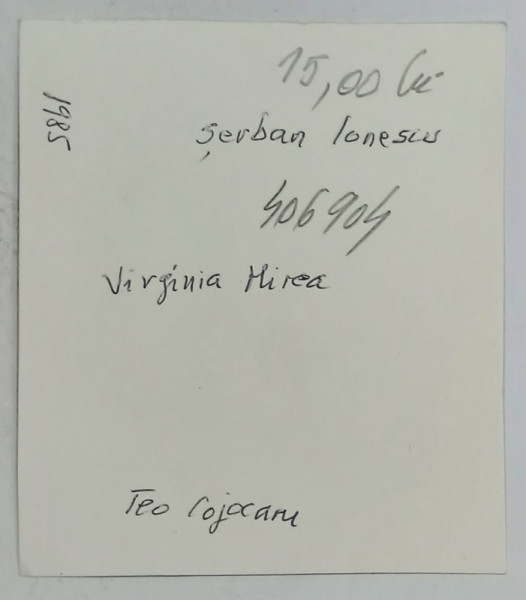 15,00 lei
1985
Șerban Ionescu
406904
Virginia Mirea
Teo Cojocaru